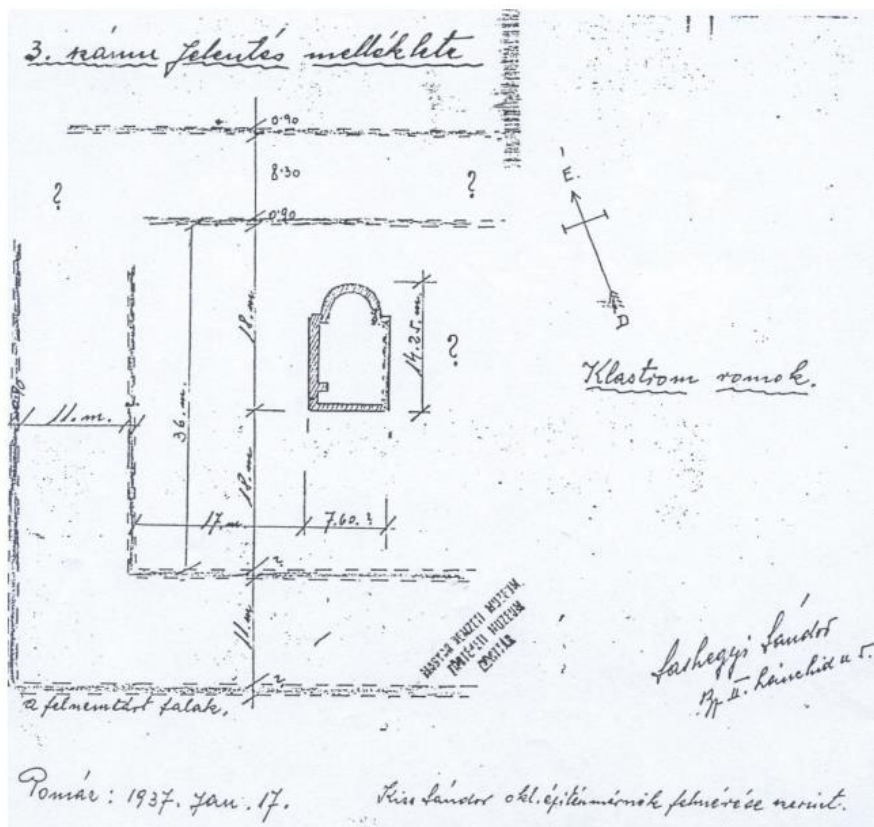 3. számu Jelentés melléklete
0.90
8.30
?
?
0.90
É.
D
18. m.
14.25. m.
?
Klastrom romok.
11. m.
36. m.
18. m.
17. m.
7.60.?
?
11. m.
?
MAGYAR NEMZETI MUZEUM,
TÖRTÉNETI MUZEUM
Sashegyi Sándor
Bp. II. Lánchid u 5.
a felnemtárt falak.
Pomáz: 1937. Jan. 17.
Kiss Sándor okl. építészmérnök felmérése szerint.